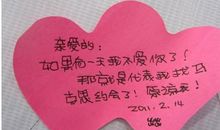 亲爱的:
如果有一天我不爱你了!
那就是代表我找马
克思约会了! 原谅我!
2011.2.14